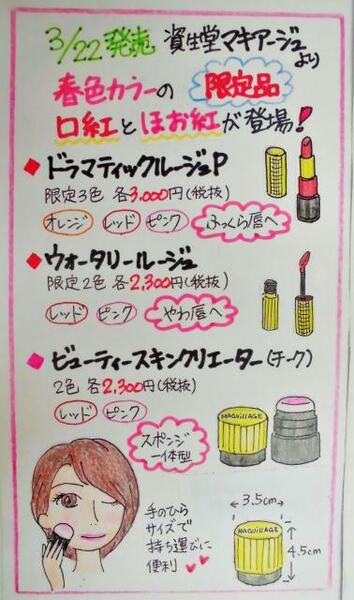 3/22発売 資生堂マキアージュより
春色カラーの 限定品
口紅とほお紅が登場!
◆ドラマティックルージュP
限定3色 各3,000円(税抜)
オレンジ レッド ピンク ふっくら唇へ
◆ウォータリールージュ
限定2色 各2,300円(税抜)
レッド ピンク やわ唇へ
◆ビューティースキンクリエーター(チーク)
2色 各2,300円(税抜)
レッド ピンク
スポンジ
一体型
MAQUillAGE
手のひら
サイズで
持ち運びに
便利
3.5cm
MAQuillAGE
4.5cm